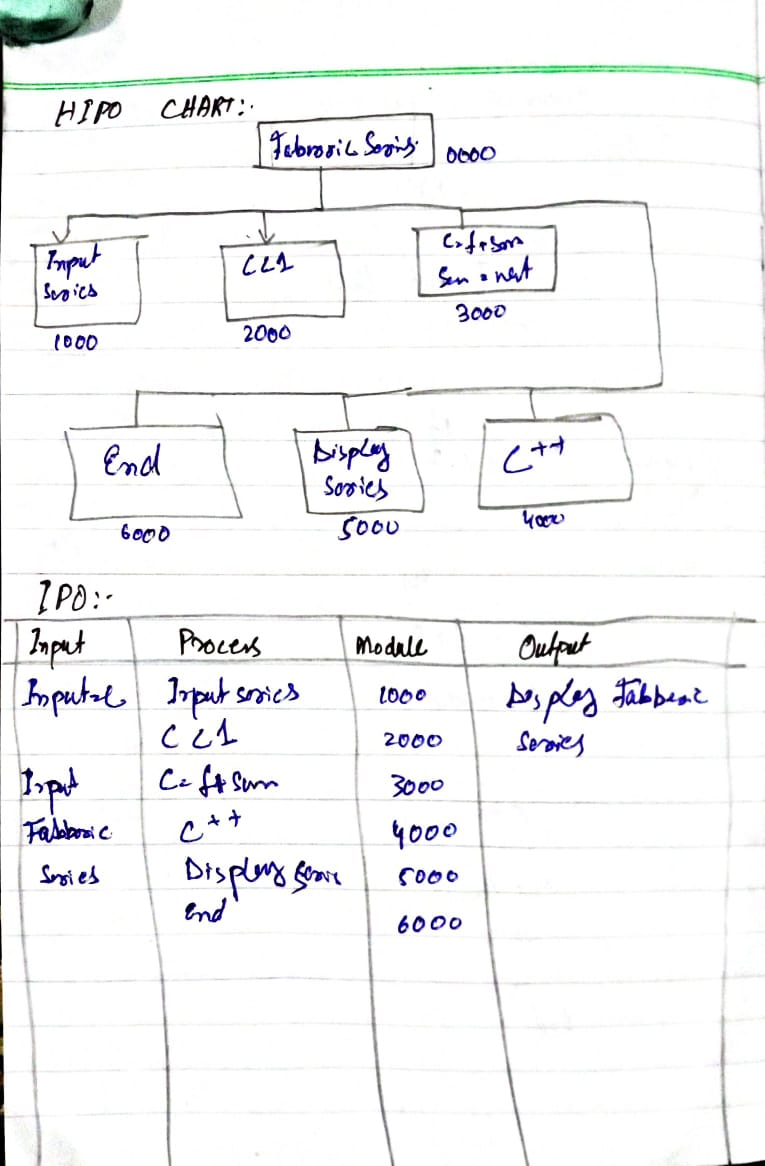 HIPO CHART:-
Fabrosic Series.
0000
Input
Series
1000
C<1
2000
C=f+Sum
Sum = next
3000
End
6000
Display
Series
5000
C++
4000
IPO:-
Input Process Module Output
Input Series 1000 Display
C<1 2000 Series
Input C= f+ Sum 3000
C++ 4000
Series Display 5000
End 6000